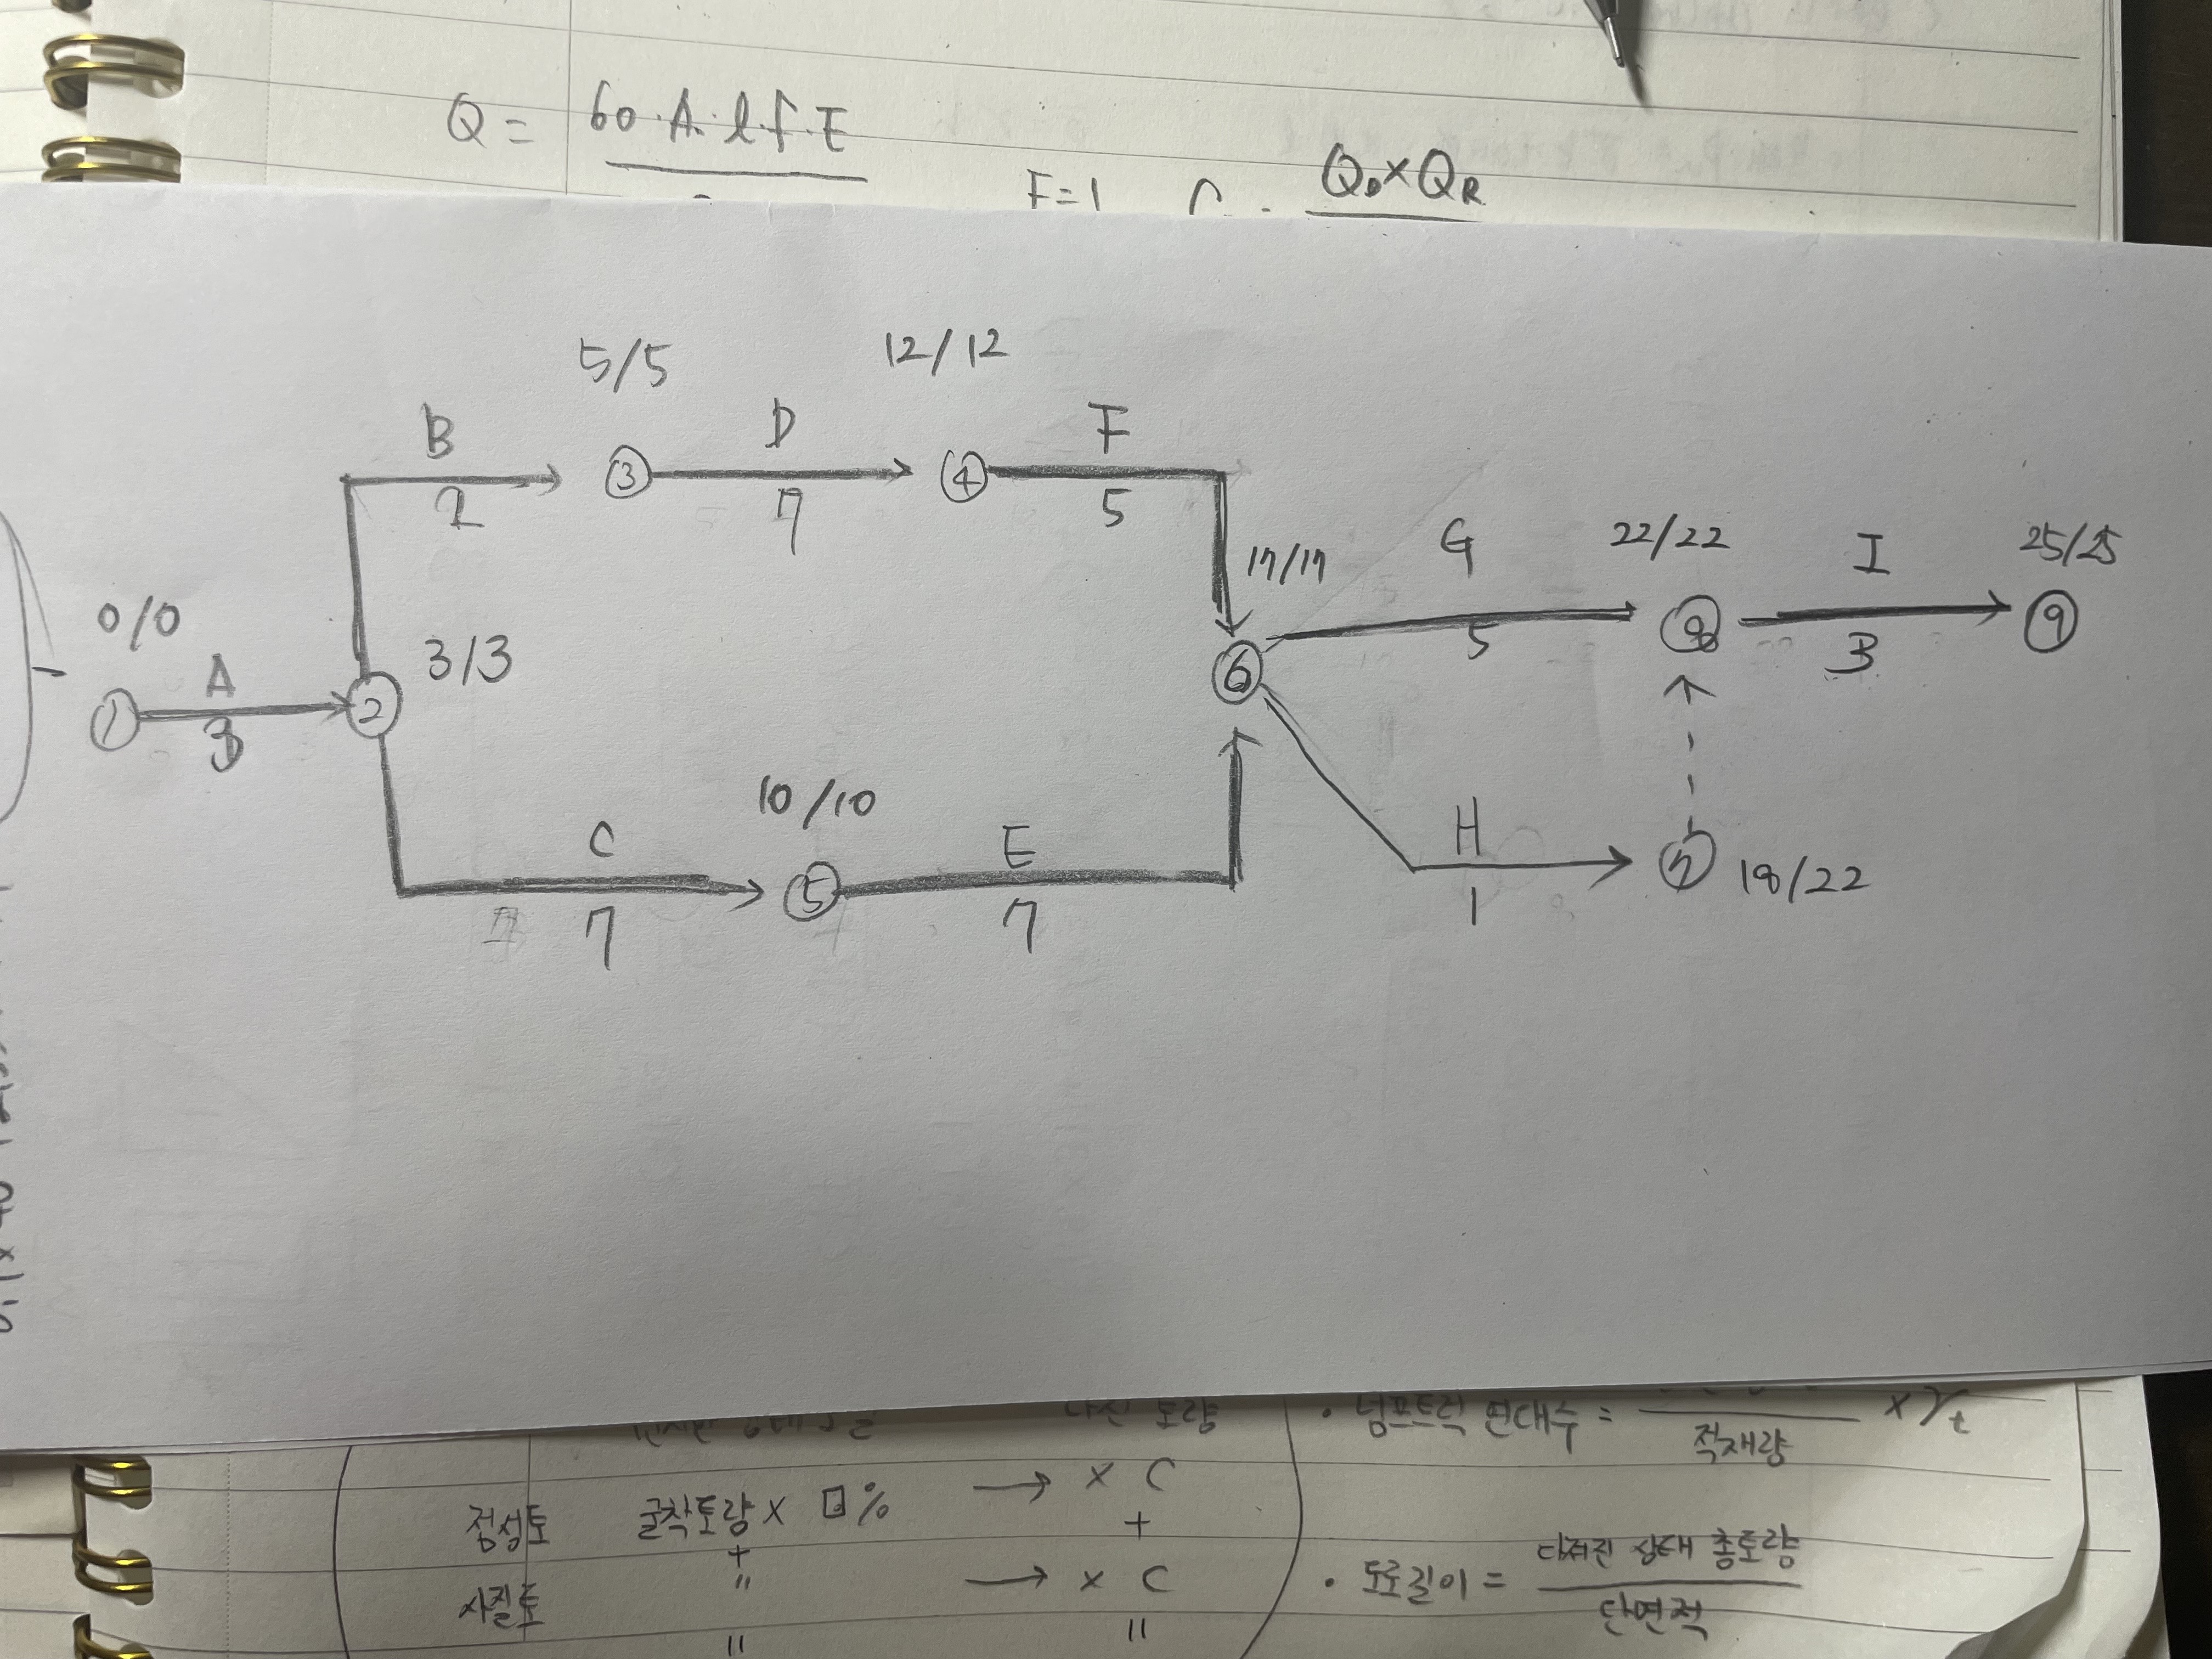 Q = 60·A·l·f·E
F=1
Q_D×Q_R
5/5
12/12
B
D
F
③
④
2
7
5
G
22/22
I
25/25
17/17
0/0
5
⑧
3
⑨
A
3/3
⑥
①
②
3
10/10
C
E
H
⑤
⑦
18/22
7
7
7
1
토량
· 덤프트럭 연대수 =
적재량
× γt
점성토 굴착토량 × □% → × C
+
+
사질토 〃 → × C
· 도로길이 = 다져진 상태 총토량
단면적
〃
〃